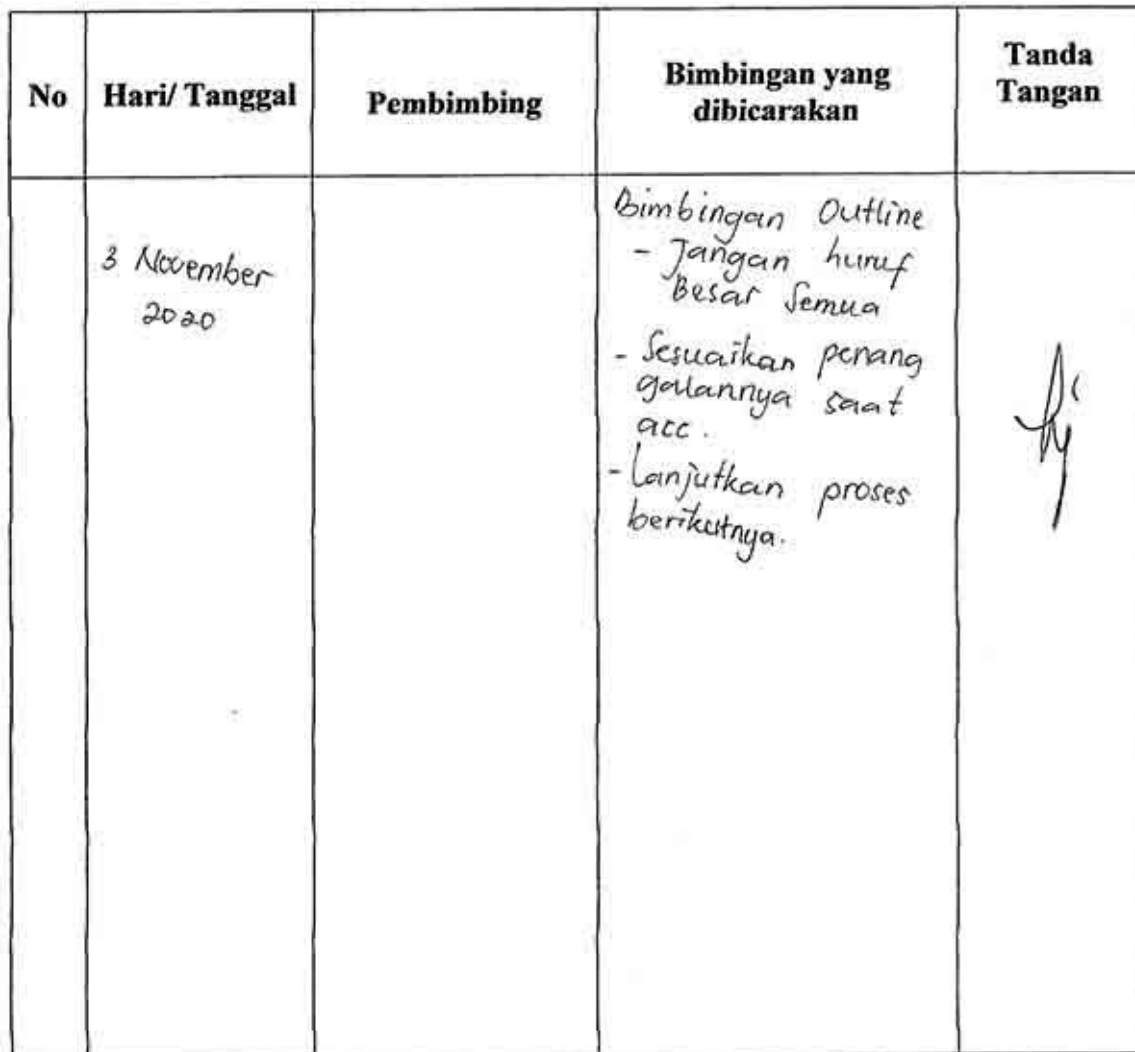 No
Hari/ Tanggal
Pembimbing
Bimbingan yang
dibicarakan
Tanda
Tangan
3 November
2020
Bimbingan Outline
- Jangan huruf
Besar Semua
- Sesuaikan penang
galannya saat
acc.
- Lanjutkan proses
berikutnya.